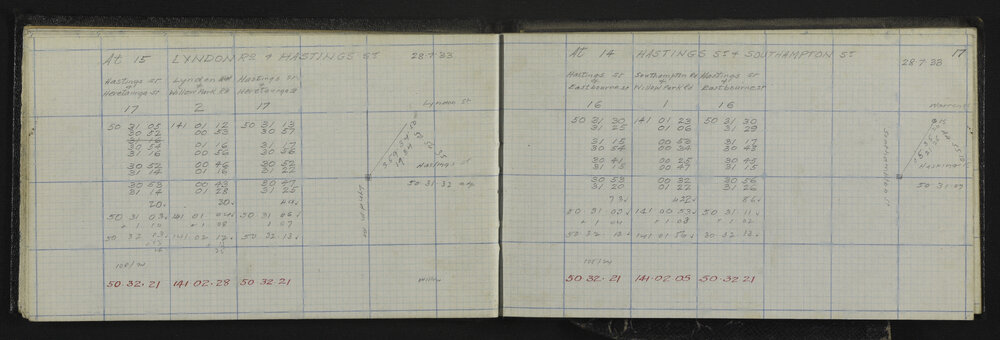 At 15 LYNDON RD & HASTINGS ST 28·7·33
Hastings St Lyndon Rd Hastings St
& & &
Heretaunga St Willow Park Rd Heretaunga St
17 2 17
Lyndon St
50 31 05 141 01 12 50 31 13
30 52 00 53 30 57
30 54 01 16 31 17
31 16 00 56 30 56
30 52 00 46 30 52
31 14 01 16 31 22
Hastings St
30 53 00 43 30 47
31 14 01 28 31 25
50·31·32
20· 30· 49·
50 31 03· 141 01 50 31 06·
+ 1 10 + 1 08 1 07
50 32 13· 141·02 12· 50·32·13·
50·32·21 141·02·28 50·32·21
Willow
At 14 HASTINGS ST & SOUTHAMPTON ST 17
28·7·33
Hastings St Southampton Rd Hastings St
& & &
Eastbourne St Willow Park Rd Eastbourne St
16 1 16
Warren
50 31 30 141 01 23 50 31 30
31 25 01 06 31 29
31 15 00 53 31 17
30 54 00 34 30 43
30 41 00 25 30 43
31 15 00 47 31 15
Hastings
30 53 00 32 30 56
31 20 01 22 31 26
50·31·09
73· 422· 86·
50 31 09· 141 00 53· 50·31·11·
+ 1 04 + 1·03 + 1 02
50 32 13· 141 01 56· 50·32·13·
50·32·21 141·02·05 50·32·21